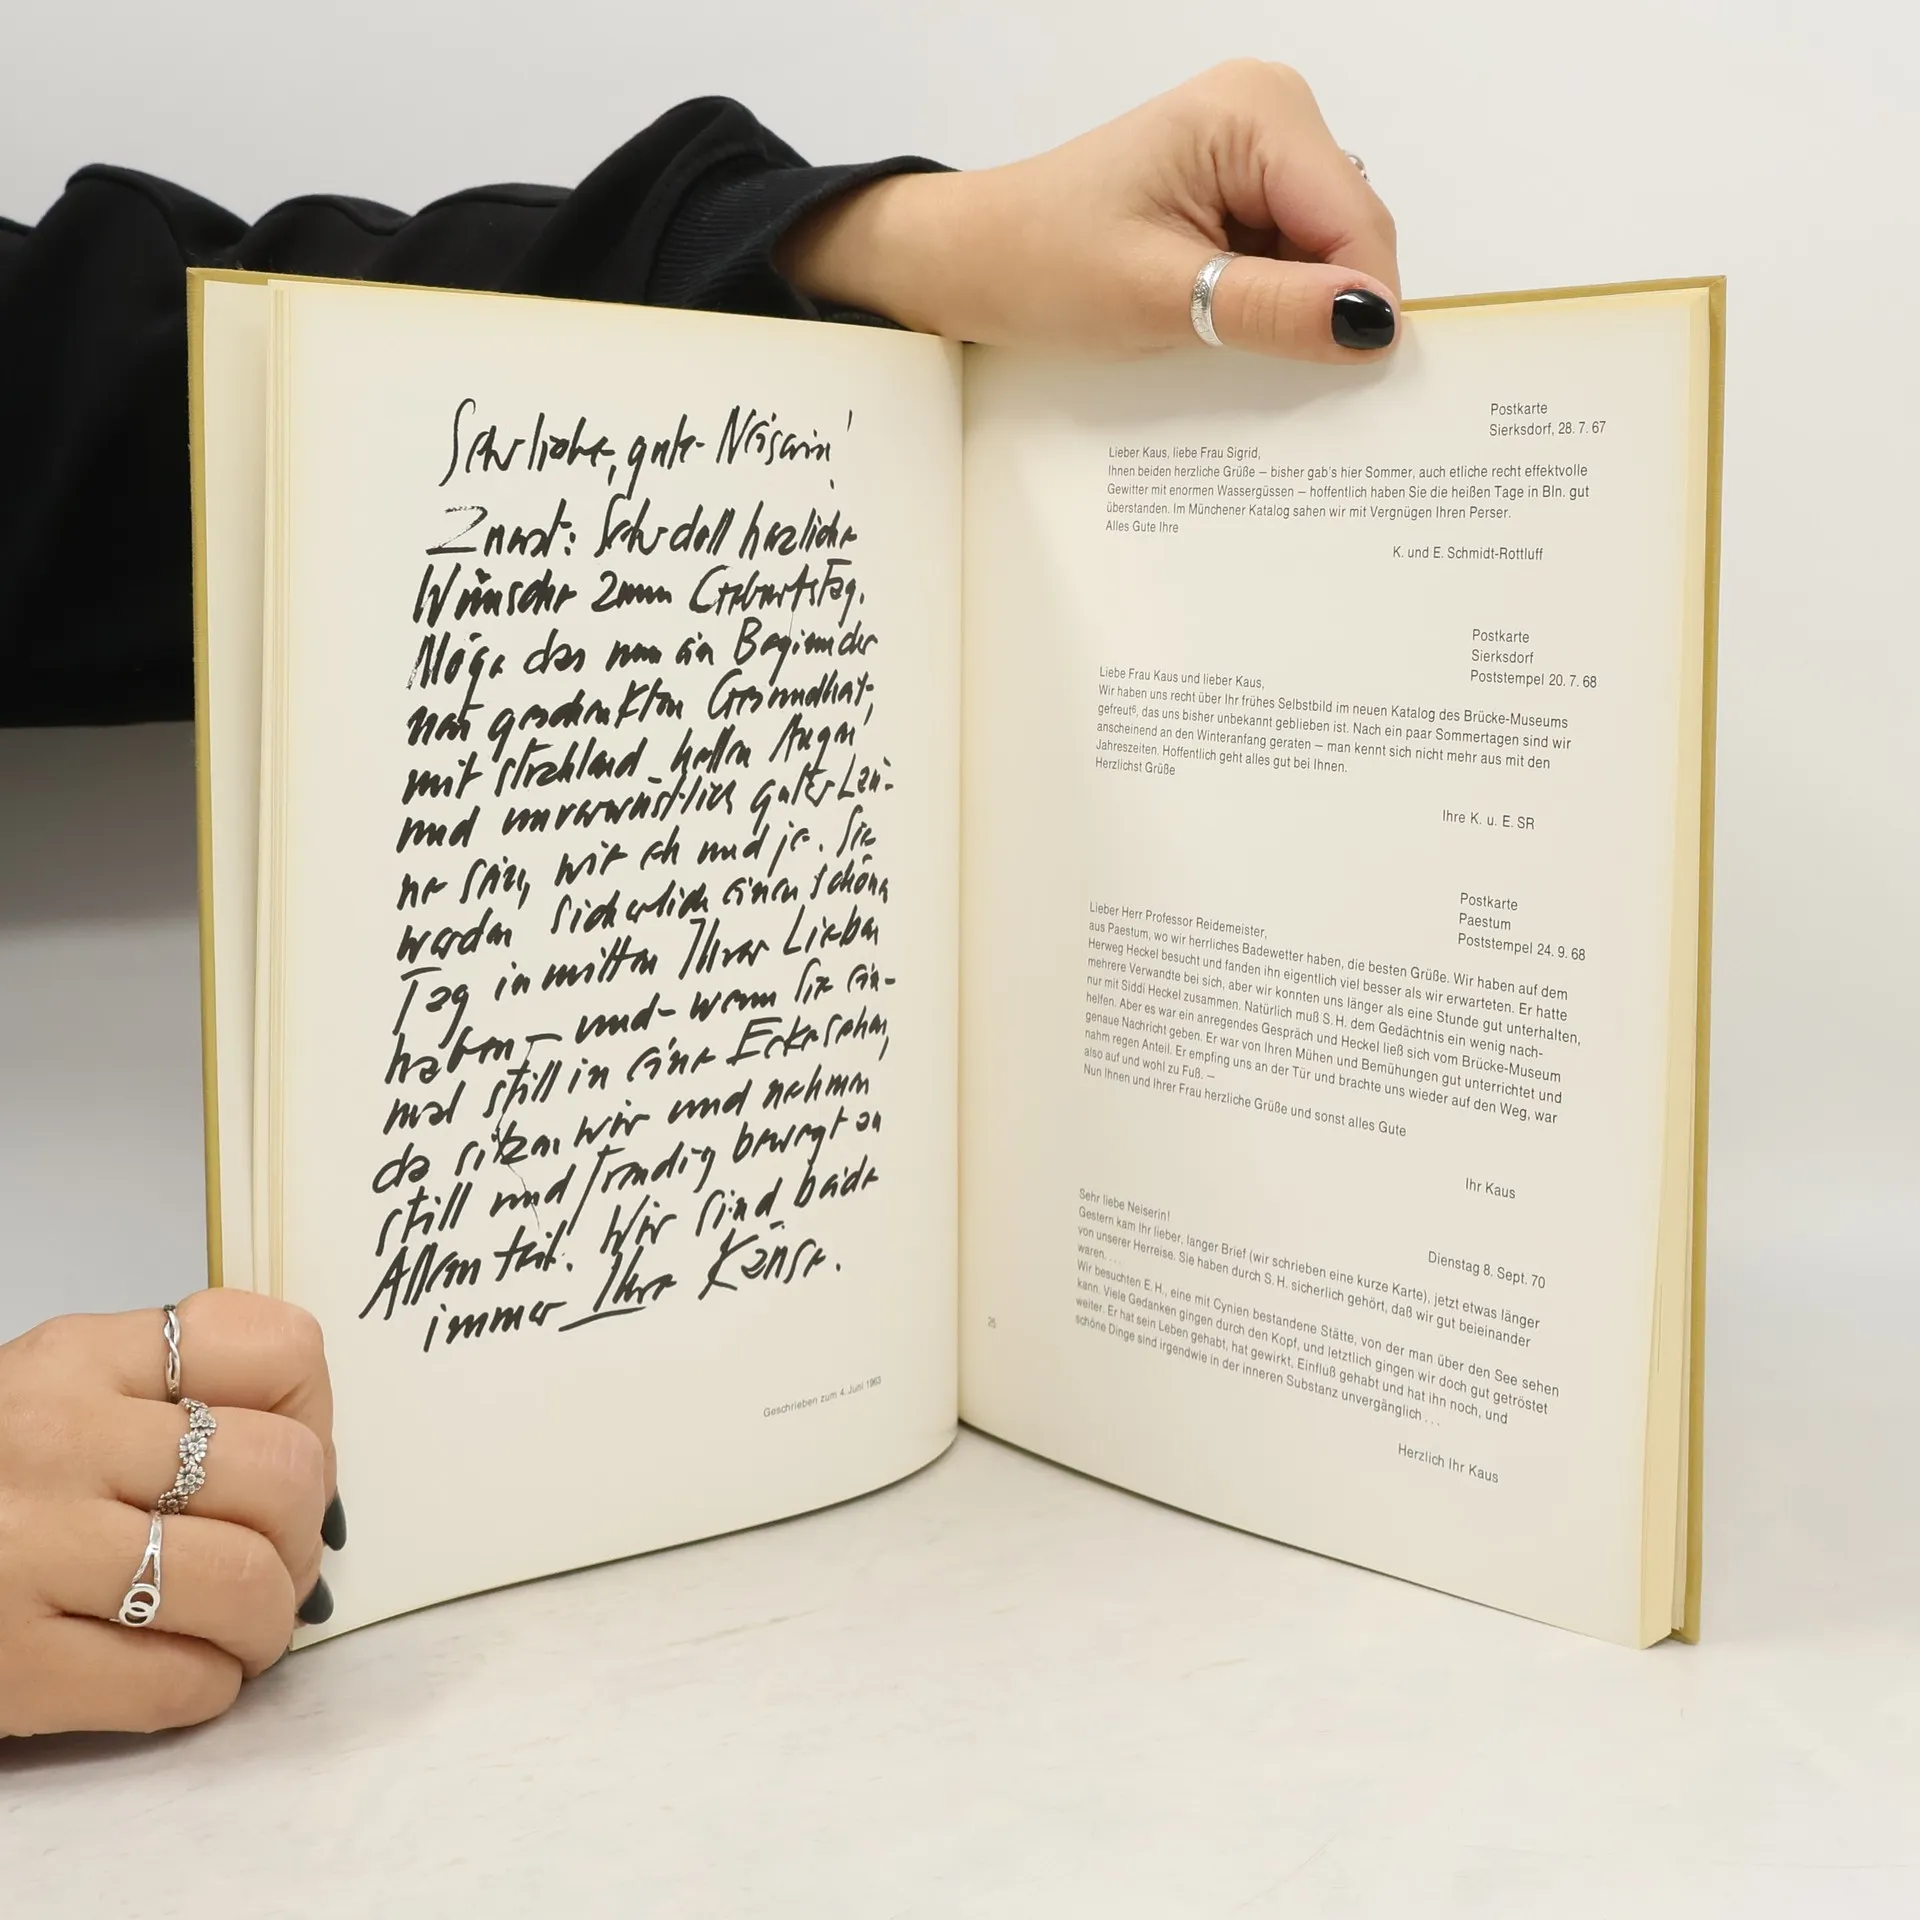 Sehr liebe, gute Neiserin!
Zuerst: Sehr doll herzliche
Wünsche zum Geburtstag.
Möge das nun ein Beginn der
neu geschenkten Gesundheit,
mit strahlend hellen Augen
und unverwüstlich guter Lau-
ne sein, wie eh und je. Sie
werden sicherlich einen schönen
Tag inmitten Ihrer Lieben
haben – und – wenn Sie ein-
mal still in eine Ecke sehen,
da sitzen wir und nehmen
still und freudig bewegt an
Allem teil. Wir sind beide
immer Ihre Käuse.
Geschrieben zum 4. Juni 1963
Postkarte
Sierksdorf, 28. 7. 67
Lieber Kaus, liebe Frau Sigrid,
Ihnen beiden herzliche Grüße – bisher gab's hier Sommer, auch etliche recht effektvolle
Gewitter mit enormen Wassergüssen – hoffentlich haben Sie die heißen Tage in Bln. gut
überstanden. Im Münchener Katalog sahen wir mit Vergnügen Ihren Perser.
Alles Gute Ihre
K. und E. Schmidt-Rottluff
Postkarte
Sierksdorf
Poststempel 20. 7. 68
Liebe Frau Kaus und lieber Kaus,
Wir haben uns recht über Ihr frühes Selbstbild im neuen Katalog des Brücke-Museums
gefreut⁶, das uns bisher unbekannt geblieben ist. Nach ein paar Sommertagen sind wir
anscheinend an den Winteranfang geraten – man kennt sich nicht mehr aus mit den
Jahreszeiten. Hoffentlich geht alles gut bei Ihnen.
Herzlichst Grüße
Ihre K. u. E. SR
Postkarte
Paestum
Poststempel 24. 9. 68
Lieber Herr Professor Reidemeister,
aus Paestum, wo wir herrliches Badewetter haben, die besten Grüße. Wir haben auf dem
Herweg Heckel besucht und fanden ihn eigentlich viel besser als wir erwarteten. Er hatte
mehrere Verwandte bei sich, aber wir konnten uns länger als eine Stunde gut unterhalten,
nur mit Siddi Heckel zusammen. Natürlich muß S. H. dem Gedächtnis ein wenig nach-
helfen. Aber es war ein anregendes Gespräch und Heckel ließ sich vom Brücke-Museum
genaue Nachricht geben. Er war von Ihren Mühen und Bemühungen gut unterrichtet und
nahm regen Anteil. Er empfing uns an der Tür und brachte uns wieder auf den Weg, war
also auf und wohl zu Fuß. –
Nun Ihnen und Ihrer Frau herzliche Grüße und sonst alles Gute
Ihr Kaus
Dienstag 8. Sept. 70
Sehr liebe Neiserin!
Gestern kam Ihr lieber, langer Brief (wir schrieben eine kurze Karte), jetzt etwas länger
von unserer Herreise. Sie haben durch S. H. sicherlich gehört, daß wir gut beieinander
waren. . . .
Wir besuchten E. H., eine mit Cynien bestandene Stätte, von der man über den See sehen
kann. Viele Gedanken gingen durch den Kopf, und letztlich gingen wir doch gut getröstet
weiter. Er hat sein Leben gehabt, hat gewirkt, Einfluß gehabt und hat ihn noch, und
schöne Dinge sind irgendwie in der inneren Substanz unvergänglich . . .
Herzlich Ihr Kaus
25